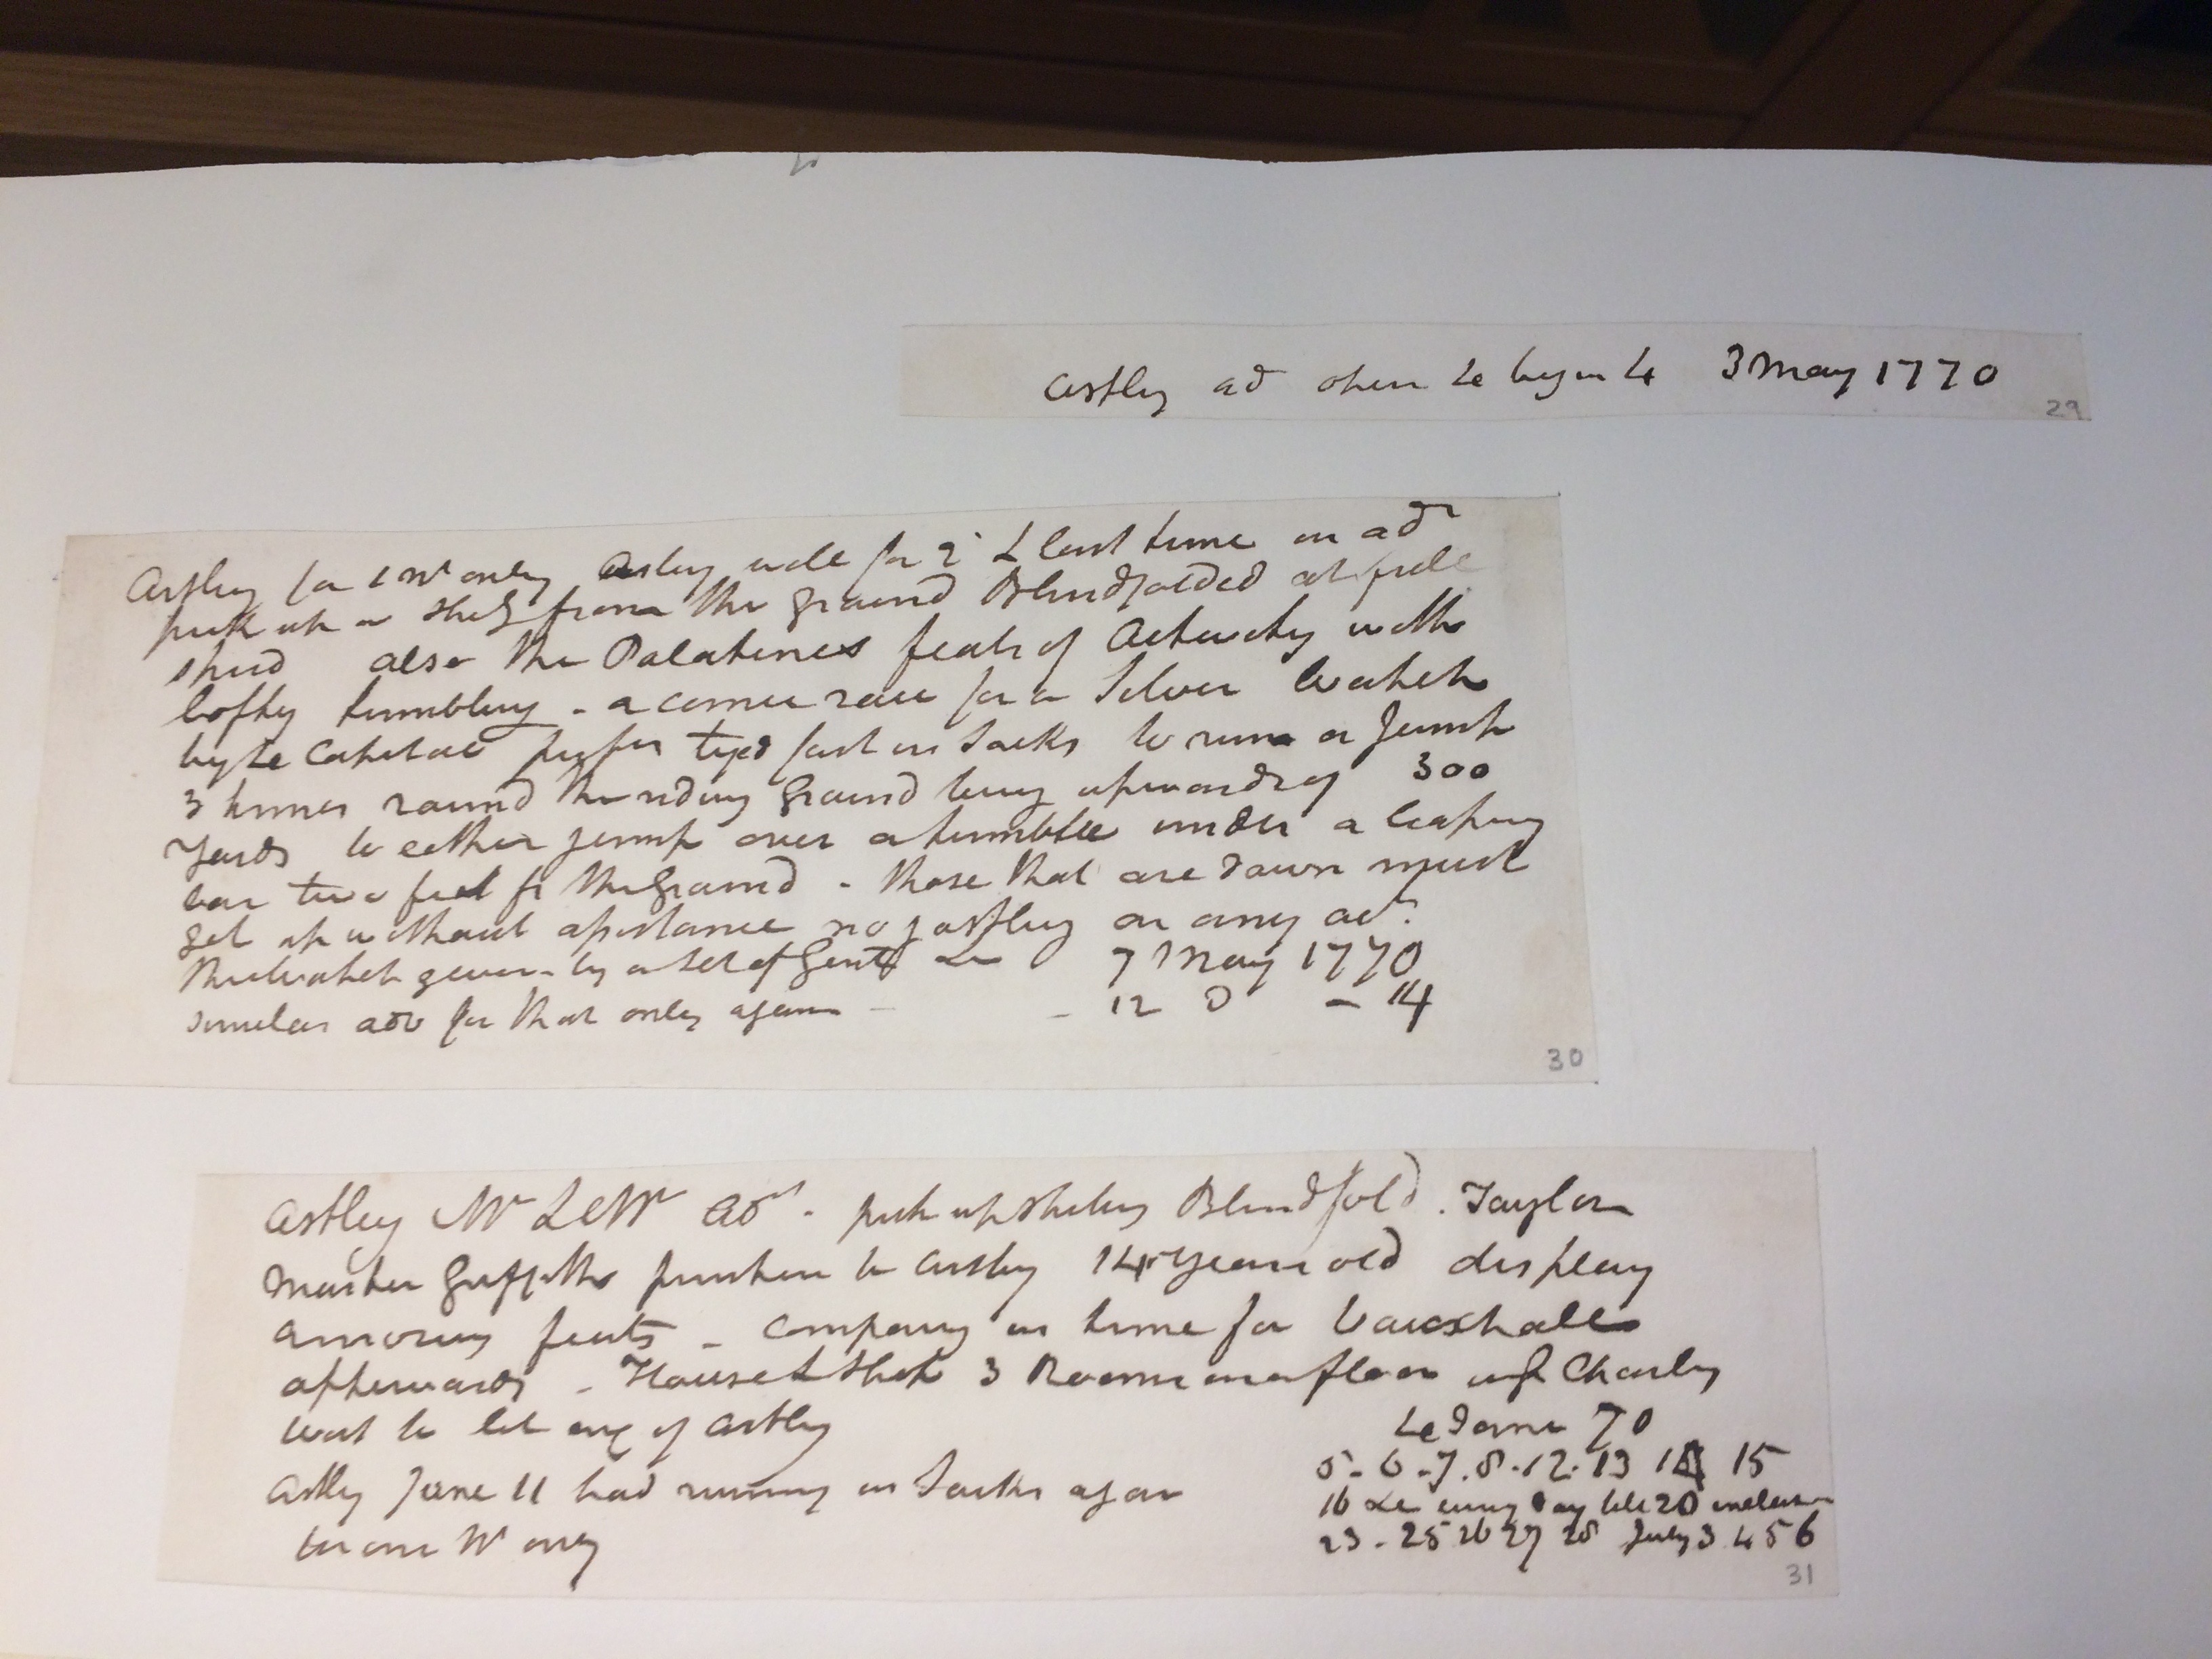 Astley ad open &c begin 4 3 May 1770
29
Astley for 1 Nt only Astley will for 2d & last time on ad
pick up a Shg from the ground Blindfolded at full
speed also the Palatines feats of Activity with
lofty tumbling - a comic race for a Silver Watch
by &c Capital tyed fast in Sacks to run or Jump
3 times round the riding Ground being upwards of 300
Yards to either jump over or tumble under a leaping
bar two feet fr the Ground - those that are down must
get up without assistance no jostling on any act.
the watch given by a set of Gents &c 7 May 1770
similar adv for that only again - - 12 D - 14
30
Astley Nt & Nt ad - pick up Shilling Blindfold. Taylor
Master Griffiths to Astley 14 years old display
amazing feats - company in time for Vauxhall
afterwards - House & Shop 3 Rooms on a floor Charley
to let enq of Astley
&c June 70
5 - 6 - 7. 8. 12. 13 14 15
Astley June 11 had running in Sacks again
16 &c every day till 20 inclusive
for one Nt only
23 - 25 26 27 28 July 3 4 5 6
31